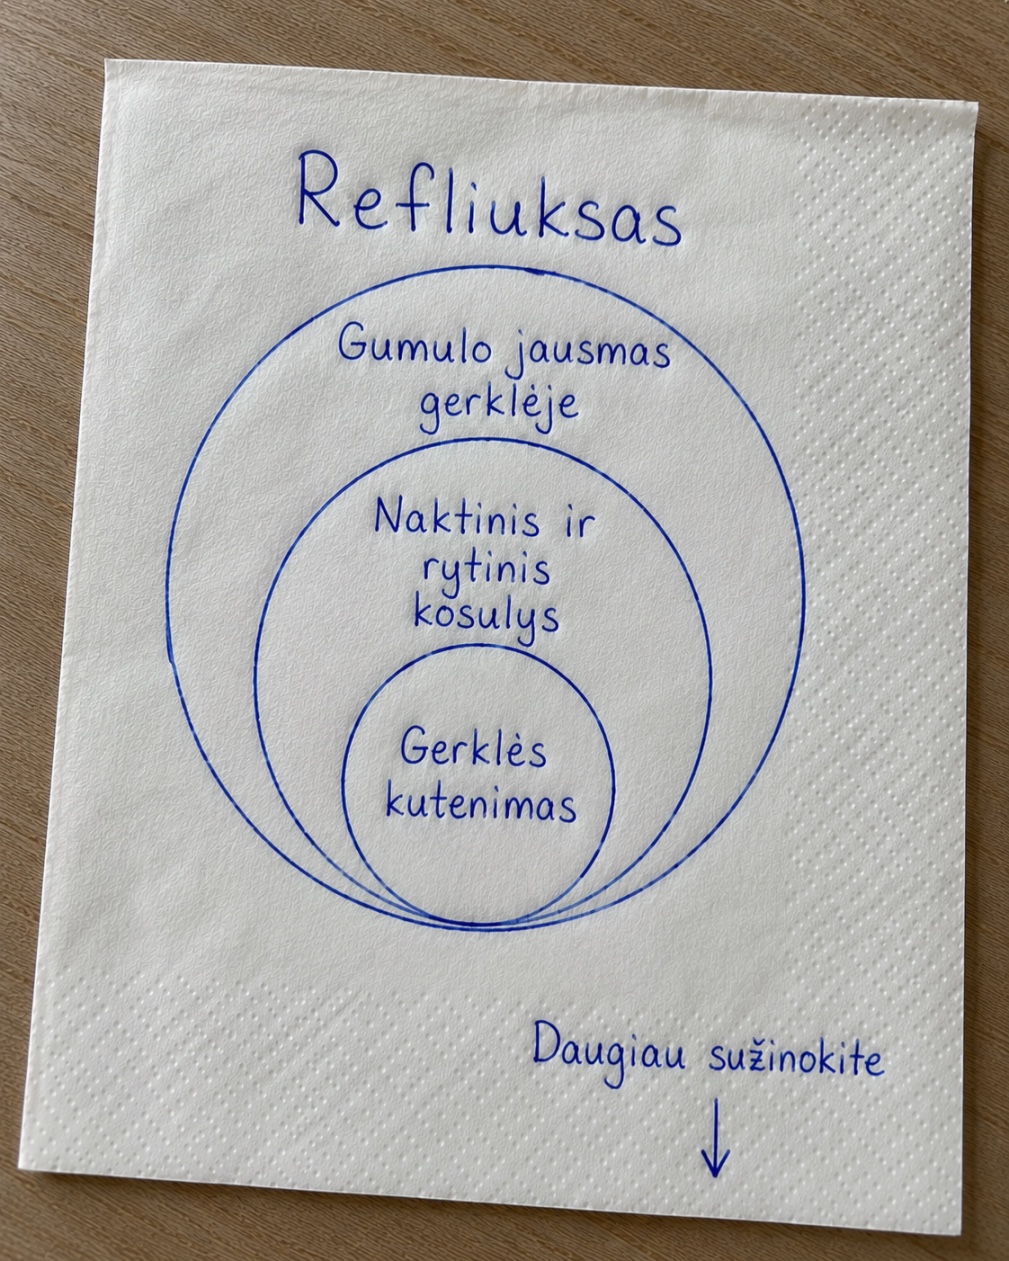 Refliuksas
Gumulo jausmas
gerklėje
Naktinis ir
rytinis
kosulys
Gerklės
kutenimas
Daugiau sužinokite